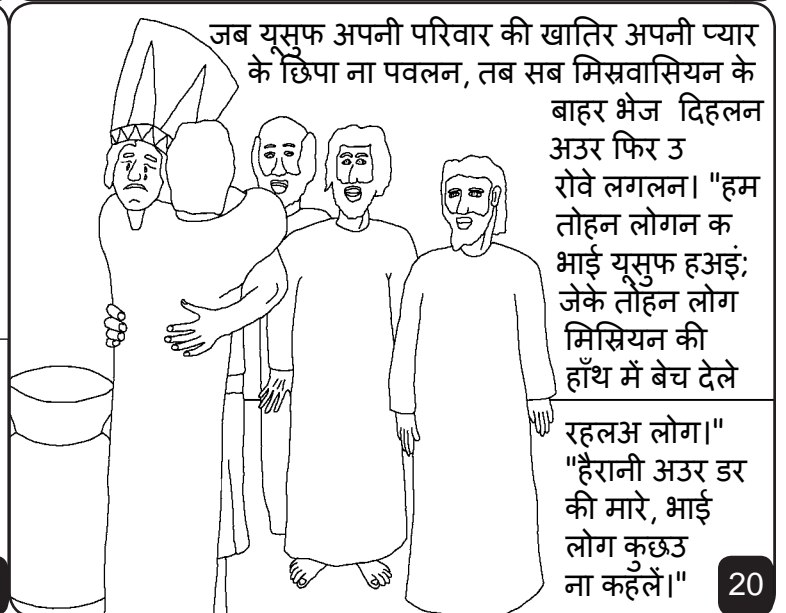 जब यूसुफ अपनी परिवार की खातिर अपनी प्यार
के छिपा ना पवलन, तब सब मिस्रवासियन के
बाहर भेज दिहलन
अउर फिर उ
रोवे लगलन। "हम
तोहन लोगन क
भाई यूसुफ हअइं;
जेके तोहन लोग
मिस्रियन की
हाँथ में बेच देले
रहलअ लोग।"
"हैरानी अउर डर
की मारे, भाई
लोग कुछउ
ना कहलें।"
20